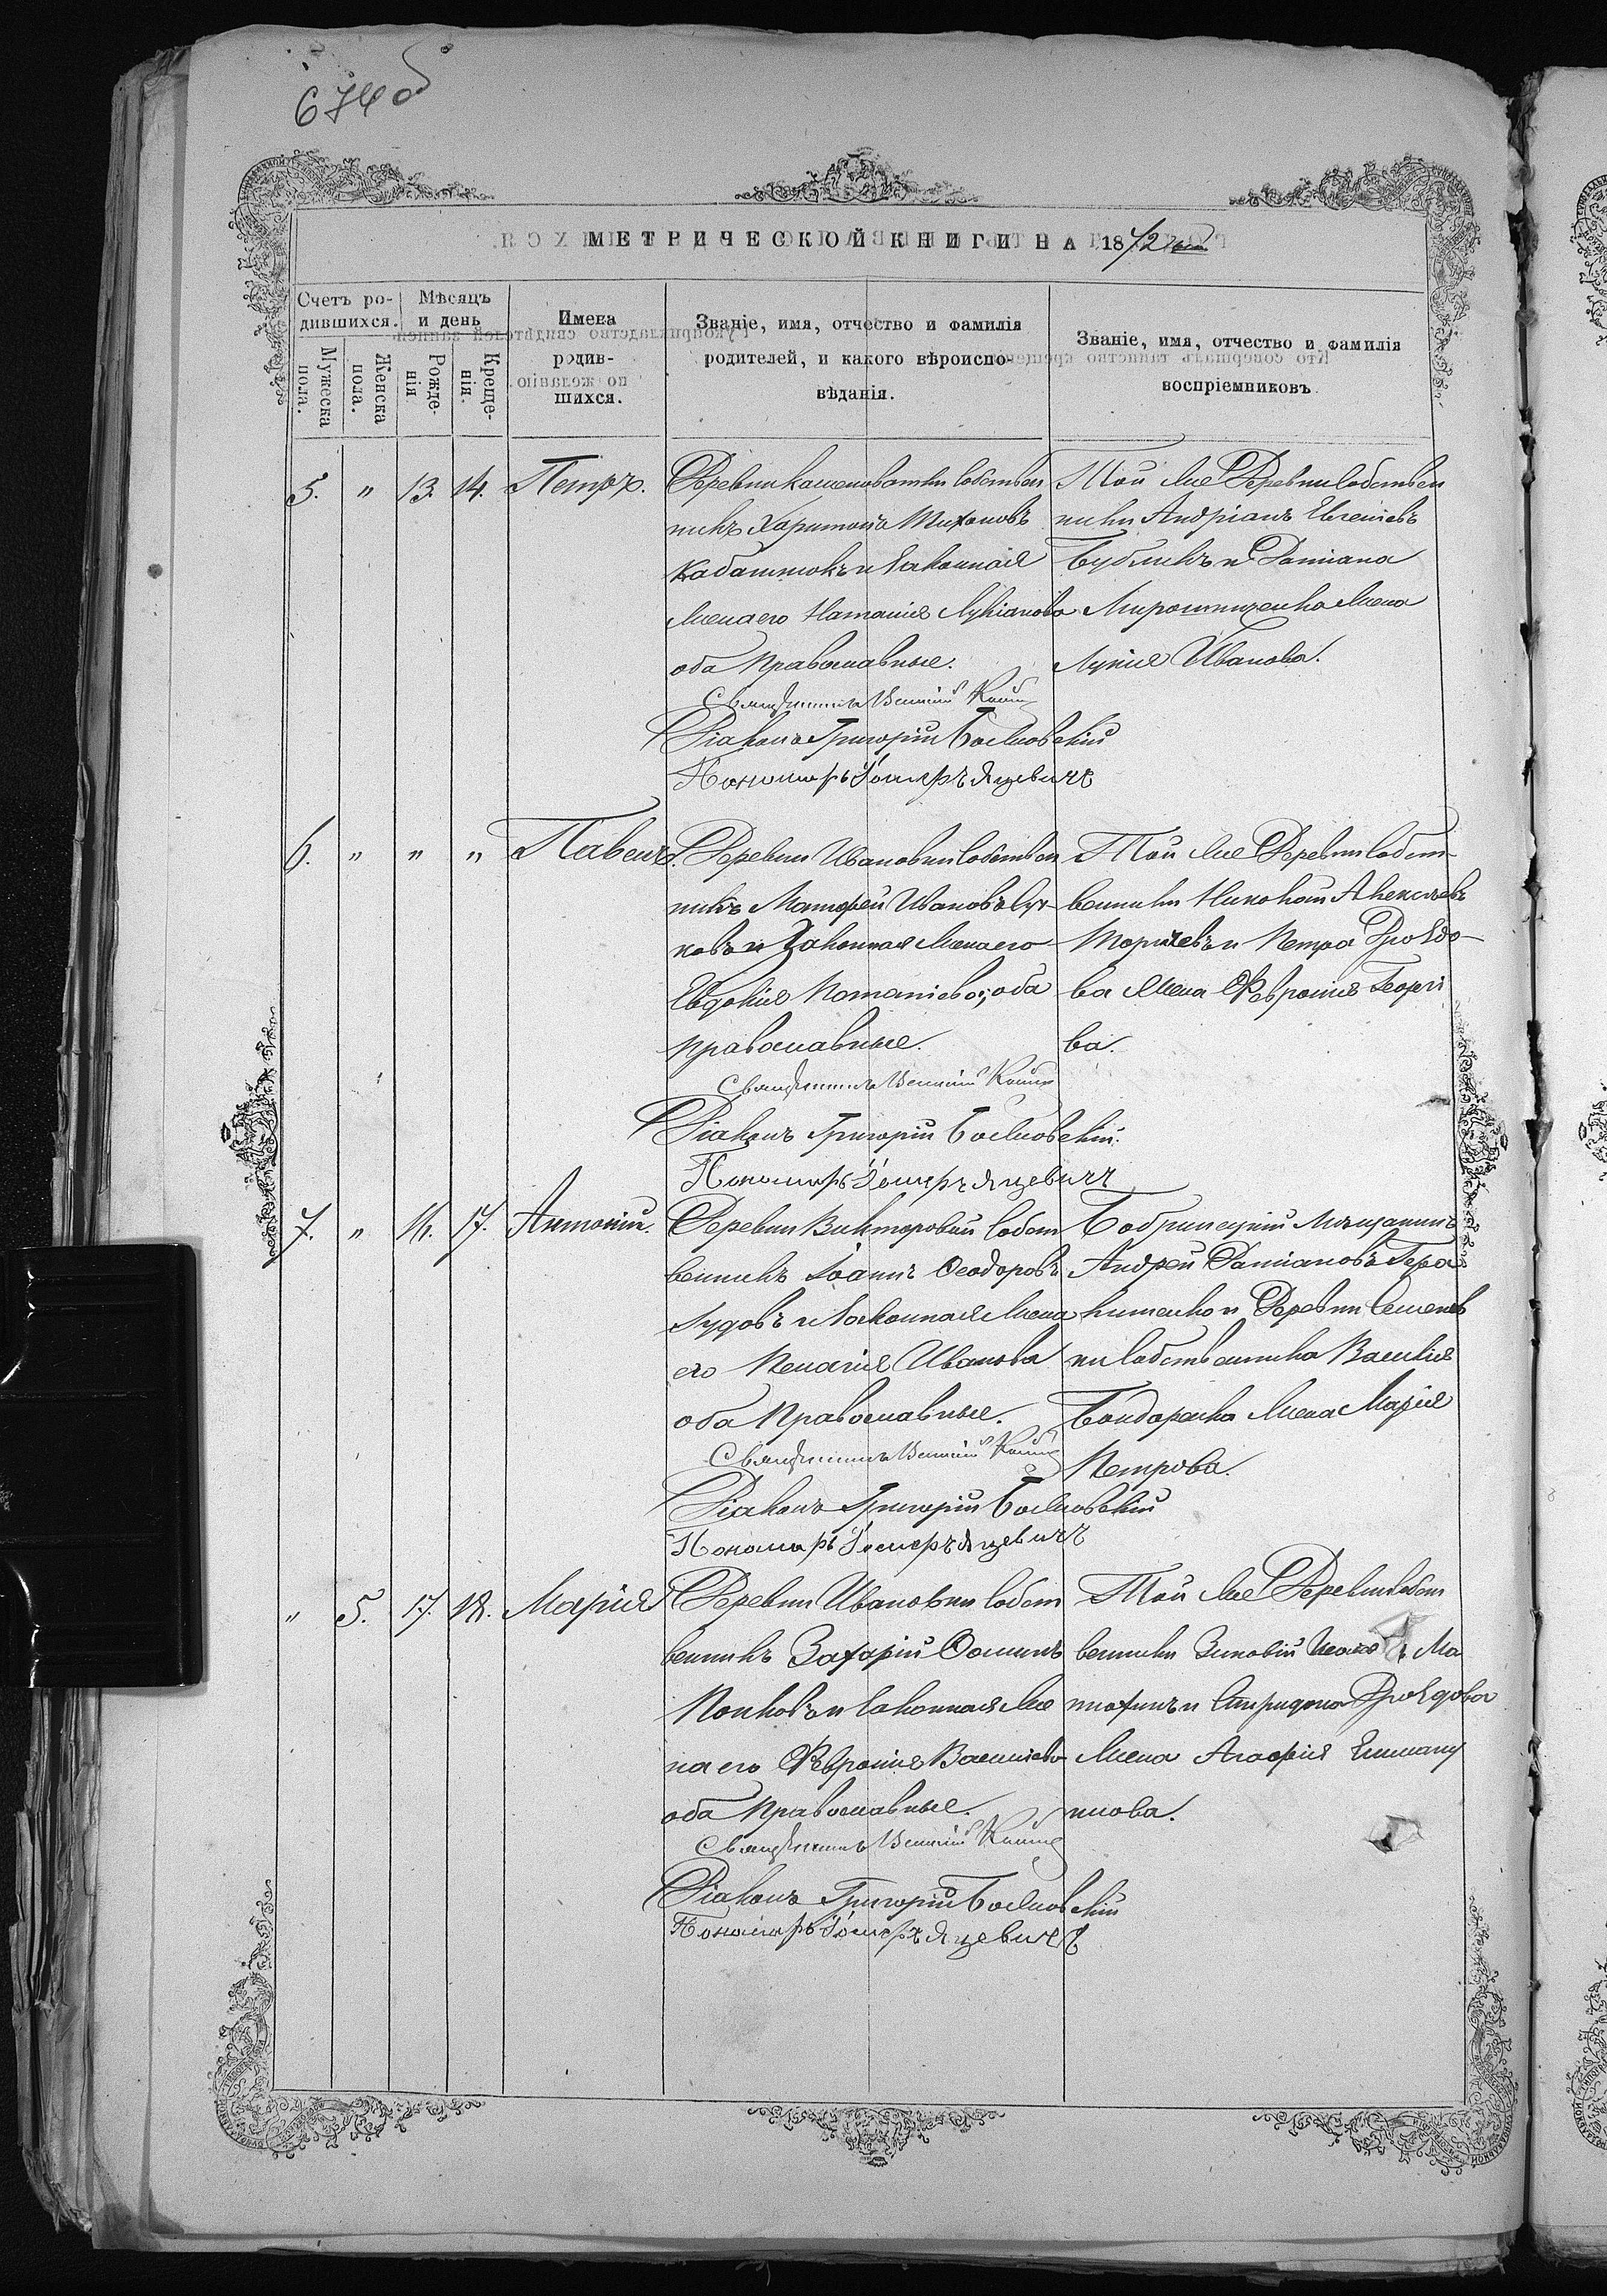 674об
МЕТРИЧЕСКОЙ КНИГИ НА 1872 годъ
Счетъ ро-
дившихся.
Мужеска пола.
Женска пола.
Мѣсяцъ
и день
Рожде-
нія
Креще-
нія.
Имена
родив-
шихся.
Званіе, имя, отчество и фамилія
родителей, и какого вѣроиспо-
вѣданія.
Званіе, имя, отчество и фамилія
воспріемниковъ
5. " 13. 14. Петръ.
Деревни Каменоватки собствен
никъ Харитонъ Тихоновъ
Кабашнюкъ и законная
жена его Наталія Лукіанова
оба православные.
Той же Деревни собствен
ники Андріанъ Евгеніевъ
Бубликъ и Даміана
Мирошниченка жена
Лукія Иванова.
Священникъ
Діаконъ Григорій Божковскій
Пономарь Яцевичъ
6. " " " Павелъ.
Деревни Ивановки собствен
никъ Матфей Ивановъ Суч-
ковъ и законная жена его
Евдокія Потапіева; оба
православные.
Той же Деревни собст-
венники Николай Алексѣевъ
и Петра Дроздо-
ва жена Февронія Георгі
ва.
Священникъ
Діаконъ Григорій Божковскій.
Пономарь Яцевичъ
7. " 16. 17. Антоній.
Деревни Викторовки собст
венникъ Іоаннъ Ѳеодоровъ
Гудовъ и законная жена
его Пелагія Иванова
оба православные.
Бобринецкій мѣщанинъ
Андрей Даміановъ Гера
сименко и Деревни Семенов
ки собственника Василія
Бондаренка жена Марія
Петрова.
Священникъ
Діаконъ Григорій Божковскій
Пономарь Яцевичъ
" 5. 17. 18. Марія
Деревни Ивановки собст
венникъ Захарій Ѳоминъ
Попковъ и законная же
на его Февронія Васильева
оба православные.
Той же Деревни собст
венники Зиновій Ма
тюхинъ и Спиридона Дроздова
жена Агафія Емману
илова.
Священникъ
Діаконъ Григорій Божковскій
Пономарь Яцевичъ